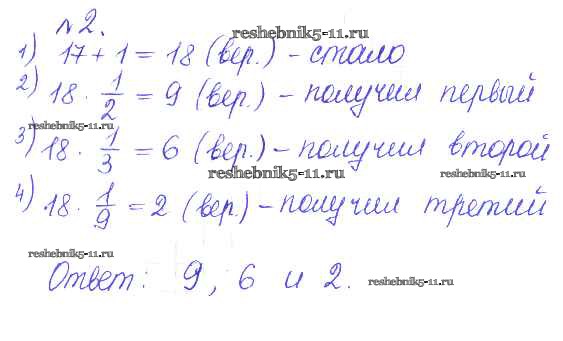 №2.
reshebnik5-11.ru
1) 17 + 1 = 18 (вер.) – стало
2) 18 · 1/2 = 9 (вер.) – получил первый
reshebnik5-11.ru
3) 18 · 1/3 = 6 (вер.) – получил второй
reshebnik5-11.ru
4) 18 · 1/9 = 2 (вер.) – получил третий
reshebnik5-11.ru
Ответ: 9, 6 и 2. reshebnik5-11.ru